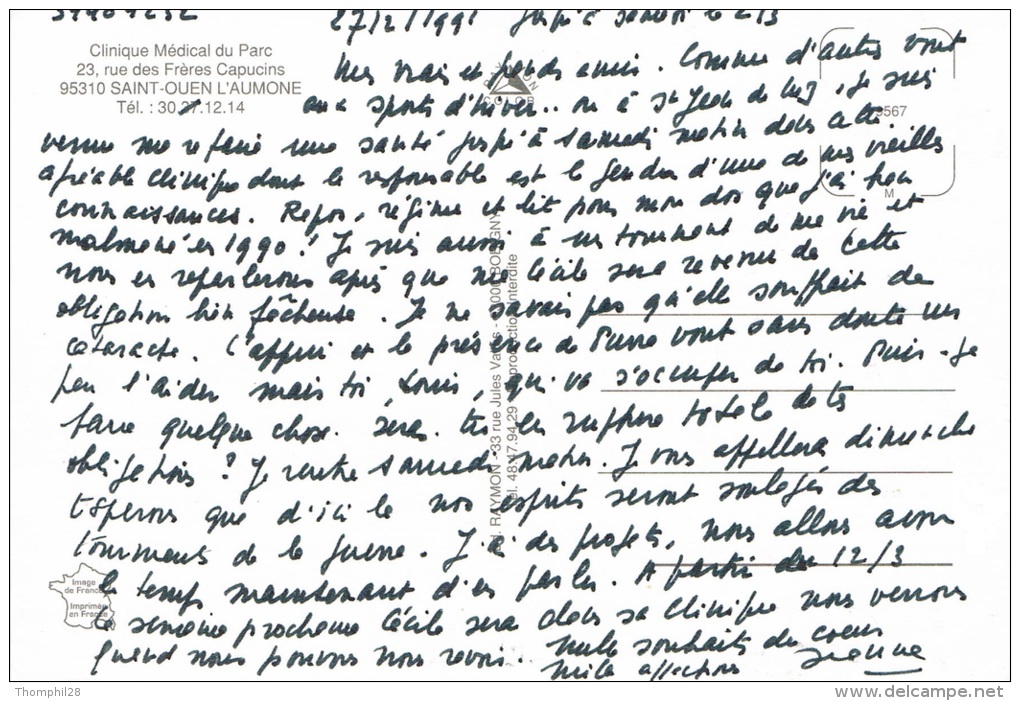 27/2/1991 jusqu'à samedi le 2/3
Clinique Médical du Parc
23, rue des Frères Capucins
95310 SAINT-OUEN L'AUMONE
Tél. : 30.27.12.14
Mes vrais et grands amis. Comme d'autres vont
aux sports d'hiver.. ou à St Jean de Luz, je suis
venue me refaire une santé jusqu'à samedi matin dans cette
agréable clinique dont le responsable est le gendre d'une de mes vieilles
connaissances. Repos, régime et lit pour mon dos que j'ai bien
malmené en 1990! Je suis aussi à un tournant de ma vie et
nous en reparlerons après que ma Cécile sera revenue de cette
obligation bien fâcheuse. Je ne savais pas qu'elle souffrait de
cataracte. L'appui et la présence de Pierre vont sans doute un
peu l'aider mais toi, Louis, qui va s'occuper de toi. Puis-je
faire quelque chose. Seras-tu en rupture totale de tes
obligations? Je rentre samedi matin. Je vous appellerai dimanche
Espérons que d'ici là nos esprits seront soulagés des
tourments de la guerre. J'ai des projets, nous allons avoir
le temps maintenant d'en parler. A partir du 12/3
la semaine prochaine Cécile sera dans sa clinique nous verrons
quand nous pouvons nous revoir..
Mille souhaits de coeur
mille affections
Jeanne
RAYMON - 33 rue Jules Vallès - BOBIGNY
Tél. 48.47.94.29 - Reproduction interdite
COLOR
9567
M
Image
de France
Imprimé
en France
Thomphil28
www.delcampe.net